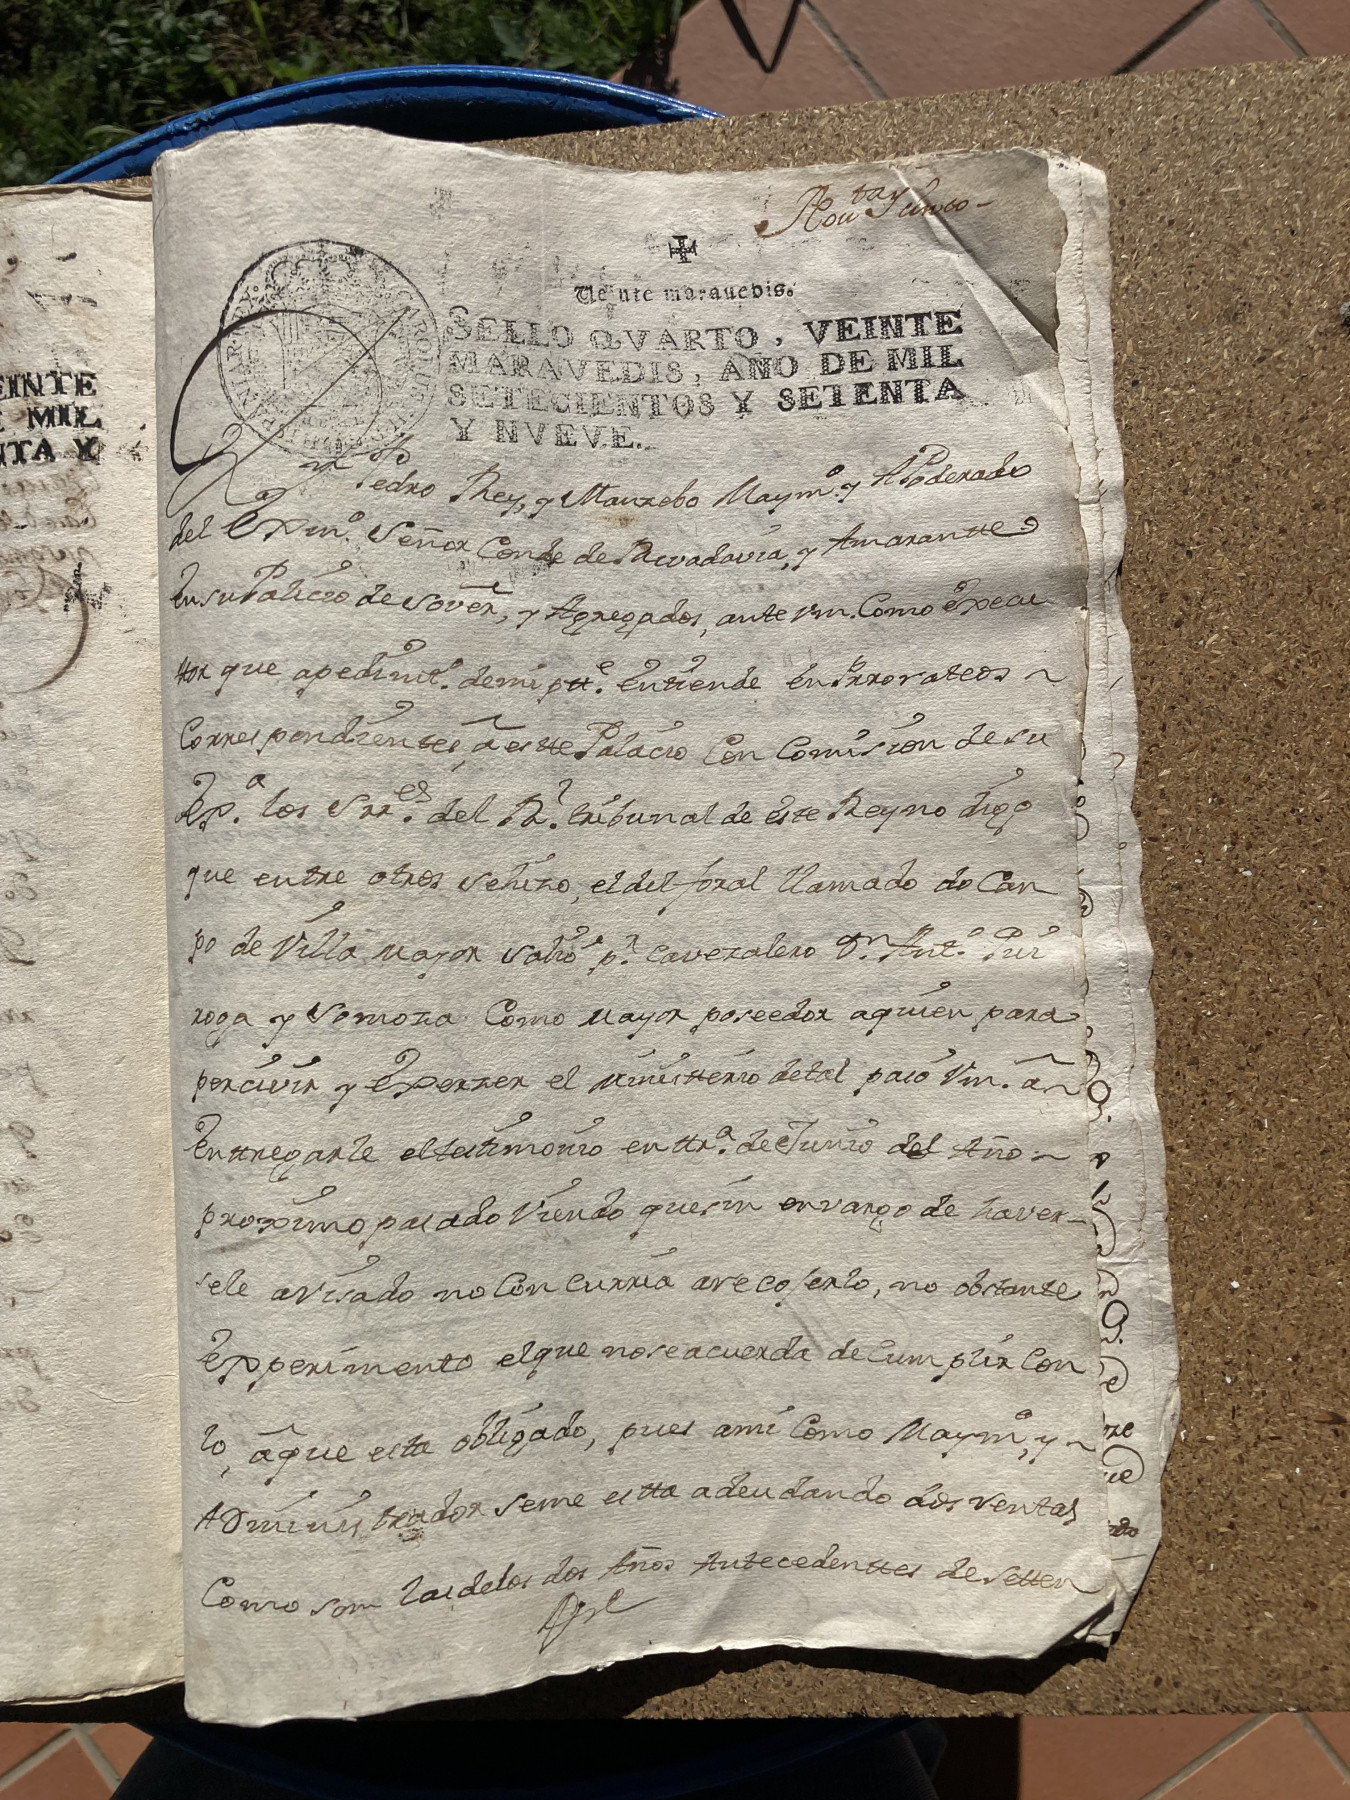 ✠
Veinte marauedis.
SELLO QVARTO, VEINTE
MARAVEDIS, AÑO DE MIL
SETECIENTOS Y SETENTA
Y NVEVE.
Pedro Rey, y Manzebo Maymº. y APoderado
del Exmº. Señor Conde de Rivadavia, y Amarantte
En su Palacio de Sover, y Agregados, ante Vm. Como Execu
ttor que apedimtº. demi ptte. Enttiende En Prrorateos ~
Correspondienttes, â este Palacio Con Comision de su
Expª. los Srres. del Rl. tribunal de Este Reyno digo
que entre otros se hizo, el del foral llamado do Can
po de Villa mayor salio pr. Cavezalero Dn. Antº. Qui
roga y Somoza Como mayor poseedor aquien para
percivir y Exerzer el ministterio detal paso Vm. â ~
Enttregarle eltestimonio en ttrª. de Junio del Año ~
proximo pasado Viendo quesin envargo de haver-
sele avisado no Concurria arecoJerlo, no obstante
Experimento elque nose acuerda de Cumplir Con
lo, âque esta obligado, pues ami Como Maymº, y ~
ADministrador seme estta adeudando dos rentas
Como son las delos dos Años Antecedenttes de setten
EINTE
E MIL
NTA Y